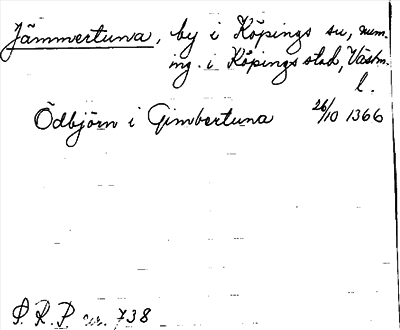 Jämmertuna, by i Köpings sn, num.
ing. i Köpings stad, Västm.
l.
Ödbjörn i Gimbertuna 26/10 1366
P. R. P. nr. 738